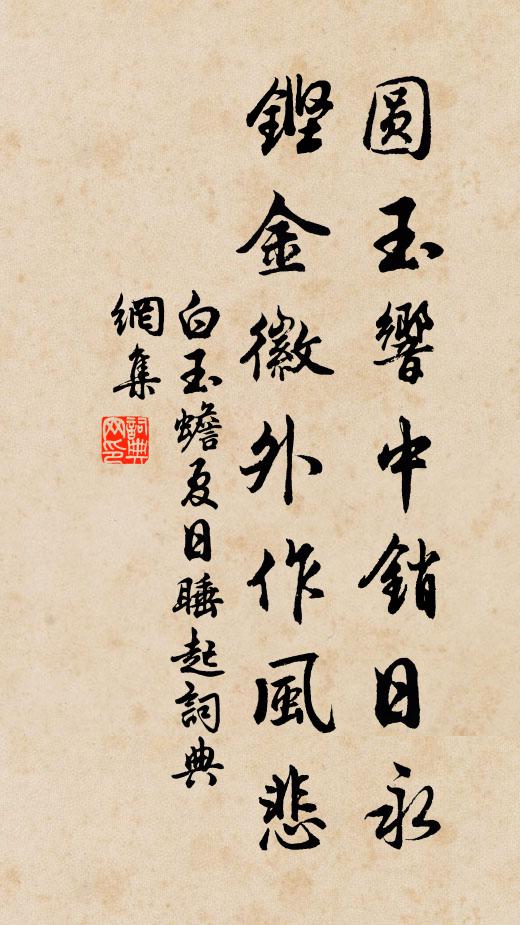 圆玉響中銷日永
鏗金徽外作風悲
白玉蟾夏日睡起詞典
網集
詞典網印